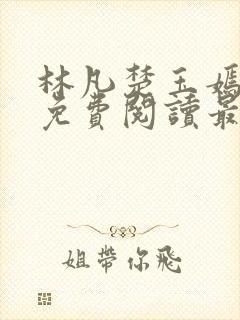 林凡楚玉嫣
免費閱讀最
姐帶你飛